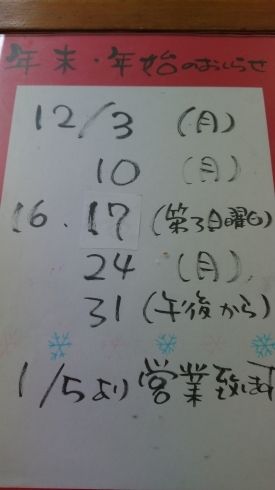 年末・年始のおしらせ
12/3 (月)
10 (月)
16.17 (第3日曜日)
24 (月)
31 (午後から)
1/5より営業致します